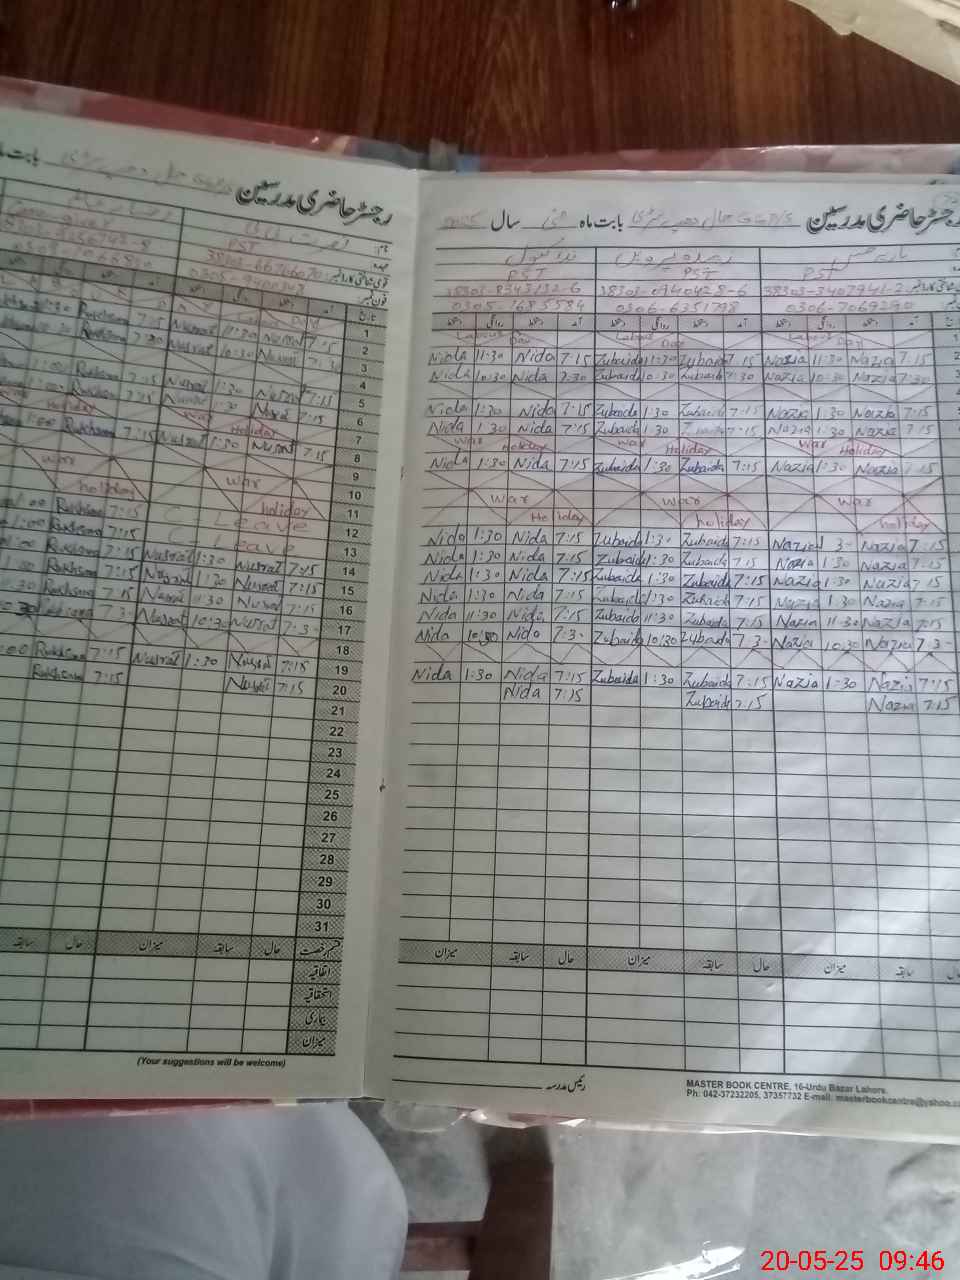 رجسٹر حاضری مدرسین
بابت ماہ
نصرت بی بی
PST
38303-6676607-0
0305-9400348
قومی شناختی کارڈ نمبر
فون نمبر
تاریخ آمد دستخط روانگی دستخط
Labour Day
1
Nusrat 11:30 Nusrat 7:15 2
Rukhsana 7:30 Nusrat 10:30 Nusrat 7:3- 3
4
Rukhsana 7:15 Nusrat 1:30 Nusrat 7:15 5
Rukhsana 7:15 Nusrat 1:30 Nusrat 7:15 6
Holiday War Holiday 7
1:00 Rukhsana 7:15 Nusrat 1:30 Nusrat 7:15 8
9
War War 10
holiday holiday 11
1:00 Rukhsana 7:15 C-Leave 12
1:00 Rukhsana 7:15 C-Leave 13
1:00 Rukhsana 7:15 Nusrat 1:30 Nusrat 7:15 14
Rukhsana 7:15 Nusrat 1:30 Nusrat 7:15 15
Rukhsana 7:15 Nusrat 11:30 Nusrat 7:15 16
Rukhsana 7:3- Nusrat 10:30 Nusrat 7:3- 17
18
Rukhsana 7:15 Nusrat 1:30 Nusrat 7:15 19
Rukhsana 7:15 Nusrat 7:15 20
21
22
23
24
25
26
27
28
29
30
31
قسم رخصت حال سابقہ میزان حال سابقہ
اتفاقیہ
استحقاقیہ
بیماری
میزان
(Your suggestions will be welcome)
رجسٹر حاضری مدرسین GGP/S بابت ماہ مئی سال 2025
PST PST PST
38303-8343132-6 38303-0940428-6 38303-3407941-2
0305-7685584 0306-6351798 0306-7069290
آمد دستخط روانگی دستخط آمد دستخط روانگی دستخط آمد دستخط روانگی دستخط
Labour Day Labour Day Labour Day
Nida 11:30 Nida 7:15 Zubaida 11:30 Zubaida 7:15 Nazia 11:30 Nazia 7:15
Nida 10:30 Nida 7:30 Zubaida 10:30 Zubaida 7:30 Nazia 10:30 Nazia 7:30
Nida 1:30 Nida 7:15 Zubaida 1:30 Zubaida 7:15 Nazia 1:30 Nazia 7:15
Nida 1:30 Nida 7:15 Zubaida 1:30 Zubaida 7:15 Nazia 1:30 Nazia 7:15
War Holiday War Holiday War Holiday
Nida 1:30 Nida 7:15 Zubaida 1:30 Zubaida 7:15 Nazia 1:30 Nazia 7:15
War War War
Holiday holiday holiday
Nida 1:30 Nida 7:15 Zubaida 1:3- Zubaida 7:15 Nazia 1 3- Nazia 7:15
Nida 1:30 Nida 7:15 Zubaida 1:30 Zubaida 7:15 Nazia 1:30 Nazia 7:15
Nida 1:30 Nida 7:15 Zubaida 1:30 Zubaida 7:15 Nazia 1:30 Nazia 7:15
Nida 1:30 Nida 7:15 Zubaida 1:30 Zubaida 7:15 Nazia 1:30 Nazia 7:15
Nida 11:30 Nida 7:15 Zubaida 11:30 Zubaida 7:15 Nazia 11:30 Nazia 7:15
Nida 10:30 Nida 7:3- Zubaida 10:30 Zubaida 7:3- Nazia 10:30 Nazia 7:3-
Nida 1:30 Nida 7:15 Zubaida 1:30 Zubaida 7:15 Nazia 1:30 Nazia 7:15
Nida 7:15 Zubaida 7:15 Nazia 7:15
حال سابقہ میزان حال سابقہ میزان حال سابقہ میزان
رئیس مدرسہ
MASTER BOOK CENTRE, 16-Urdu Bazar Lahore.
Ph: 042-37232205, 37357732 E-mail: masterbookcentre@yahoo.co
20-05-25 09:46